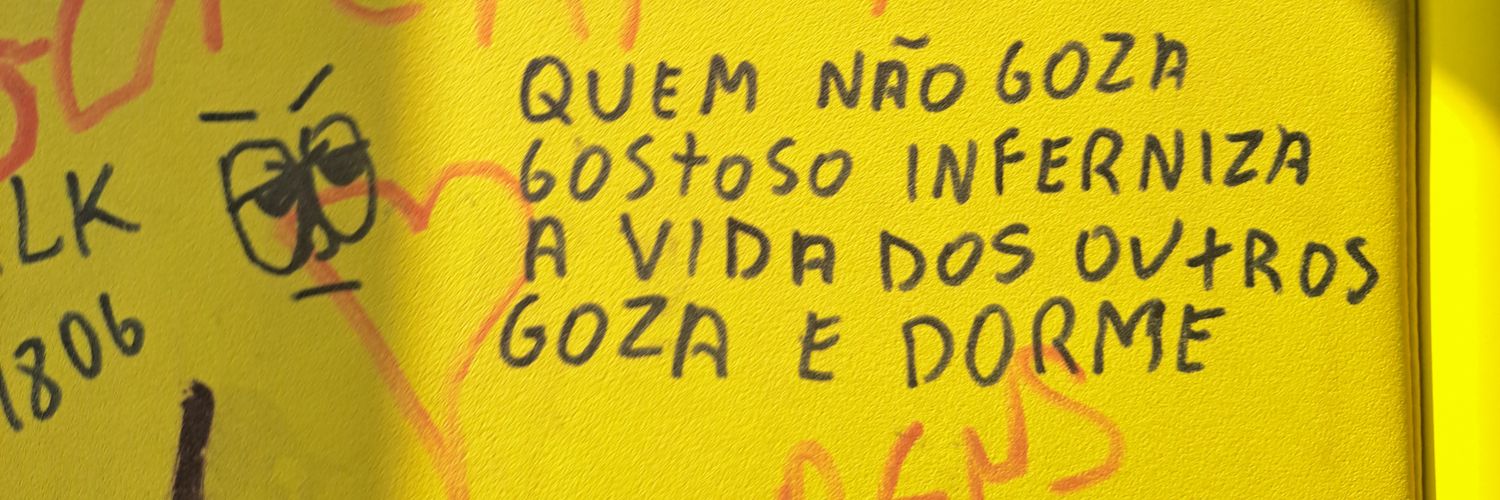 QUEM NÃO GOZA
GOSTOSO INFERNIZA
A VIDA DOS OUTROS
GOZA E DORME
LK
1806